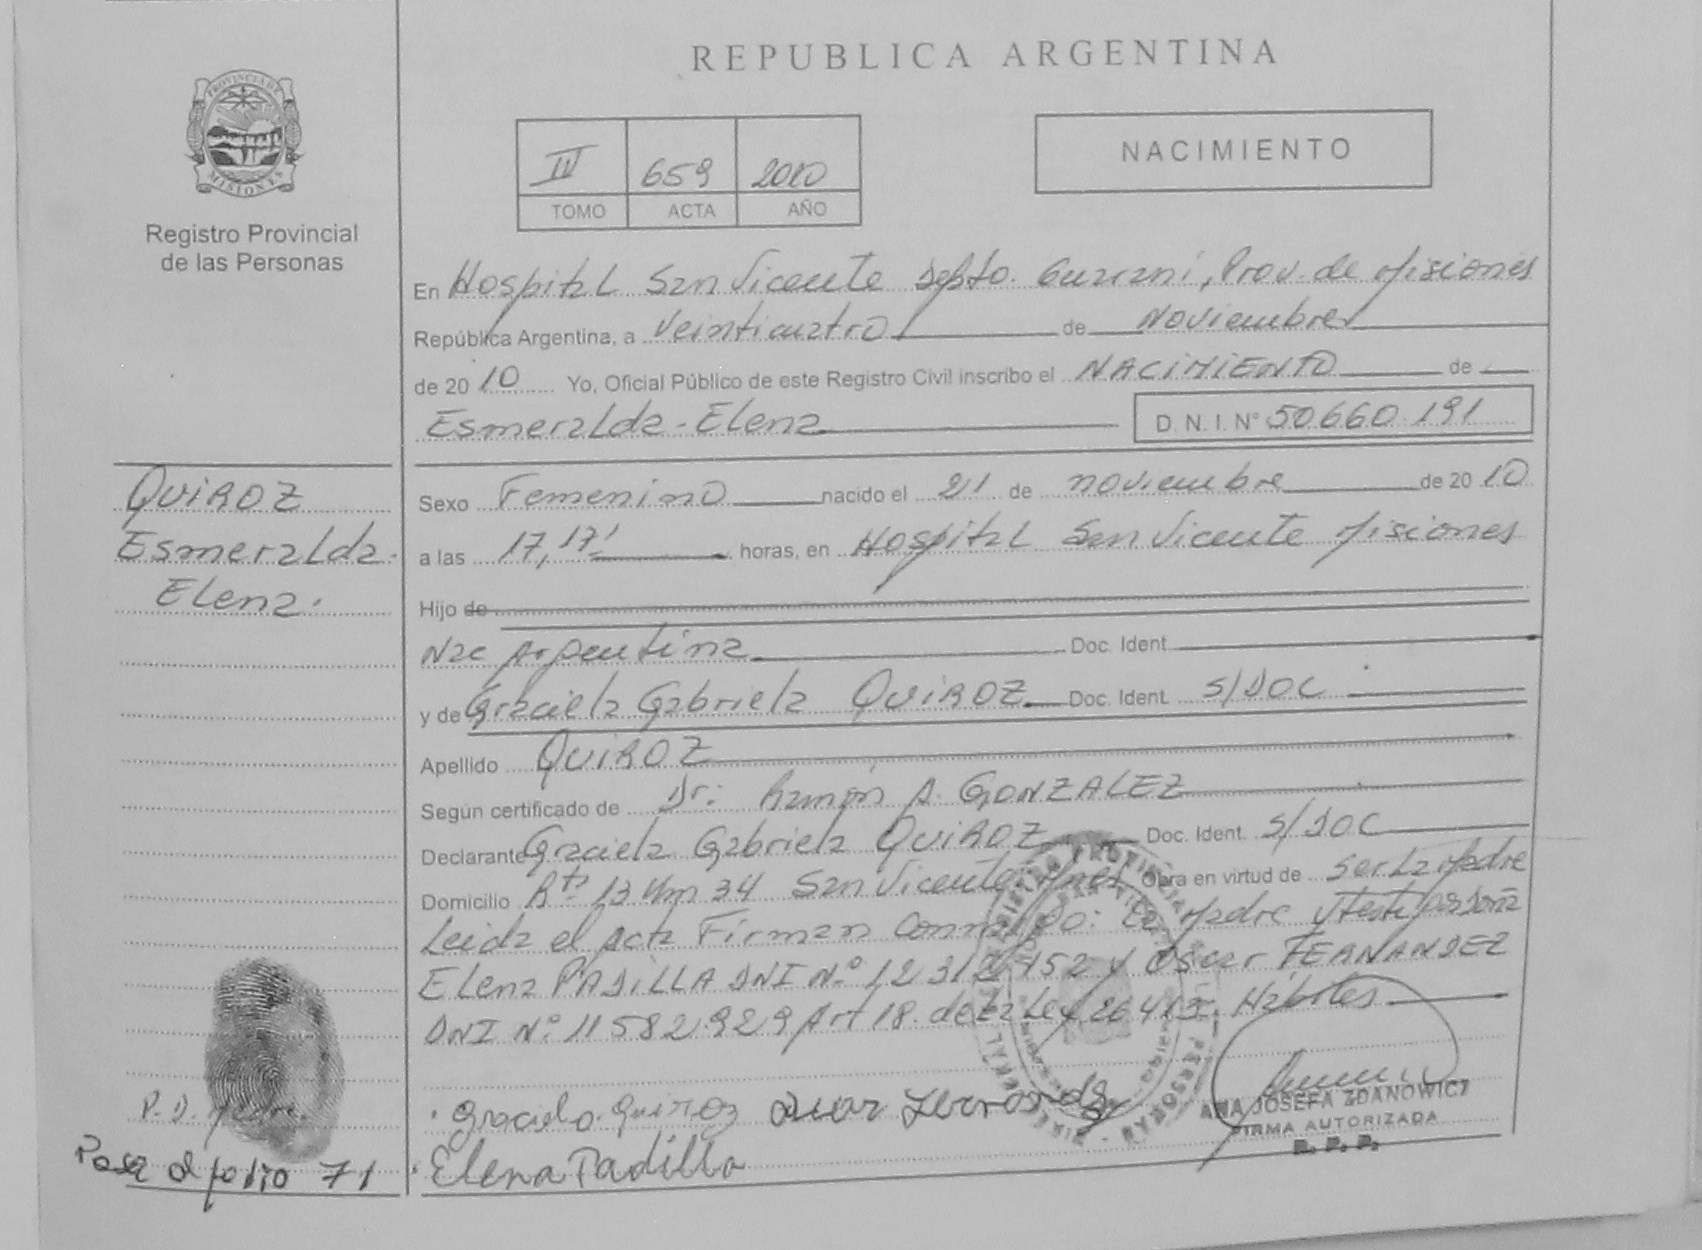 REPUBLICA ARGENTINA
PROVINCIA DE MISIONES
Registro Provincial
de las Personas
III 659 2010
TOMO ACTA AÑO
NACIMIENTO
En Hospital San Vicente Depto. Guaraní, Prov. de Misiones
República Argentina, a Veinticuatro de Noviembre
de 2010 Yo, Oficial Público de este Registro Civil inscribo el NACIMIENTO de
Esmeralda-Elena D.N.I. Nº 50.660.191
QUIROZ
Esmeralda-
Elena.
Sexo Femenino nacido el 21 de noviembre de 2010
a las 17,17' horas, en Hospital San Vicente Misiones
Hijo de
Nac Argentina Doc. Ident.
y de Graciela Gabriela QUIROZ Doc. Ident. S/DOC
Apellido QUIROZ
Según certificado de Dr: Ramón A. GONZALEZ
Declarante Graciela Gabriela QUIROZ Doc. Ident. S/DOC
Domicilio Rta 13 Km 34 San Vicente Mnes Obra en virtud de ser La Madre
Leida el Acta Firman Conmigo: La Madre y Testi
Elena PADILLA DNI Nº 12 312 152 y Oscar FERNANDEZ
DNI Nº 11 582.929 Art 18. de La Ley 26 413 Hábiles
P.D. Madre.
Graciela Quiroz Oscar
Elena Padilla
ANA JOSEFA ZDANOWICZ
FIRMA AUTORIZADA
R. P. P.
Pasa al folio 71